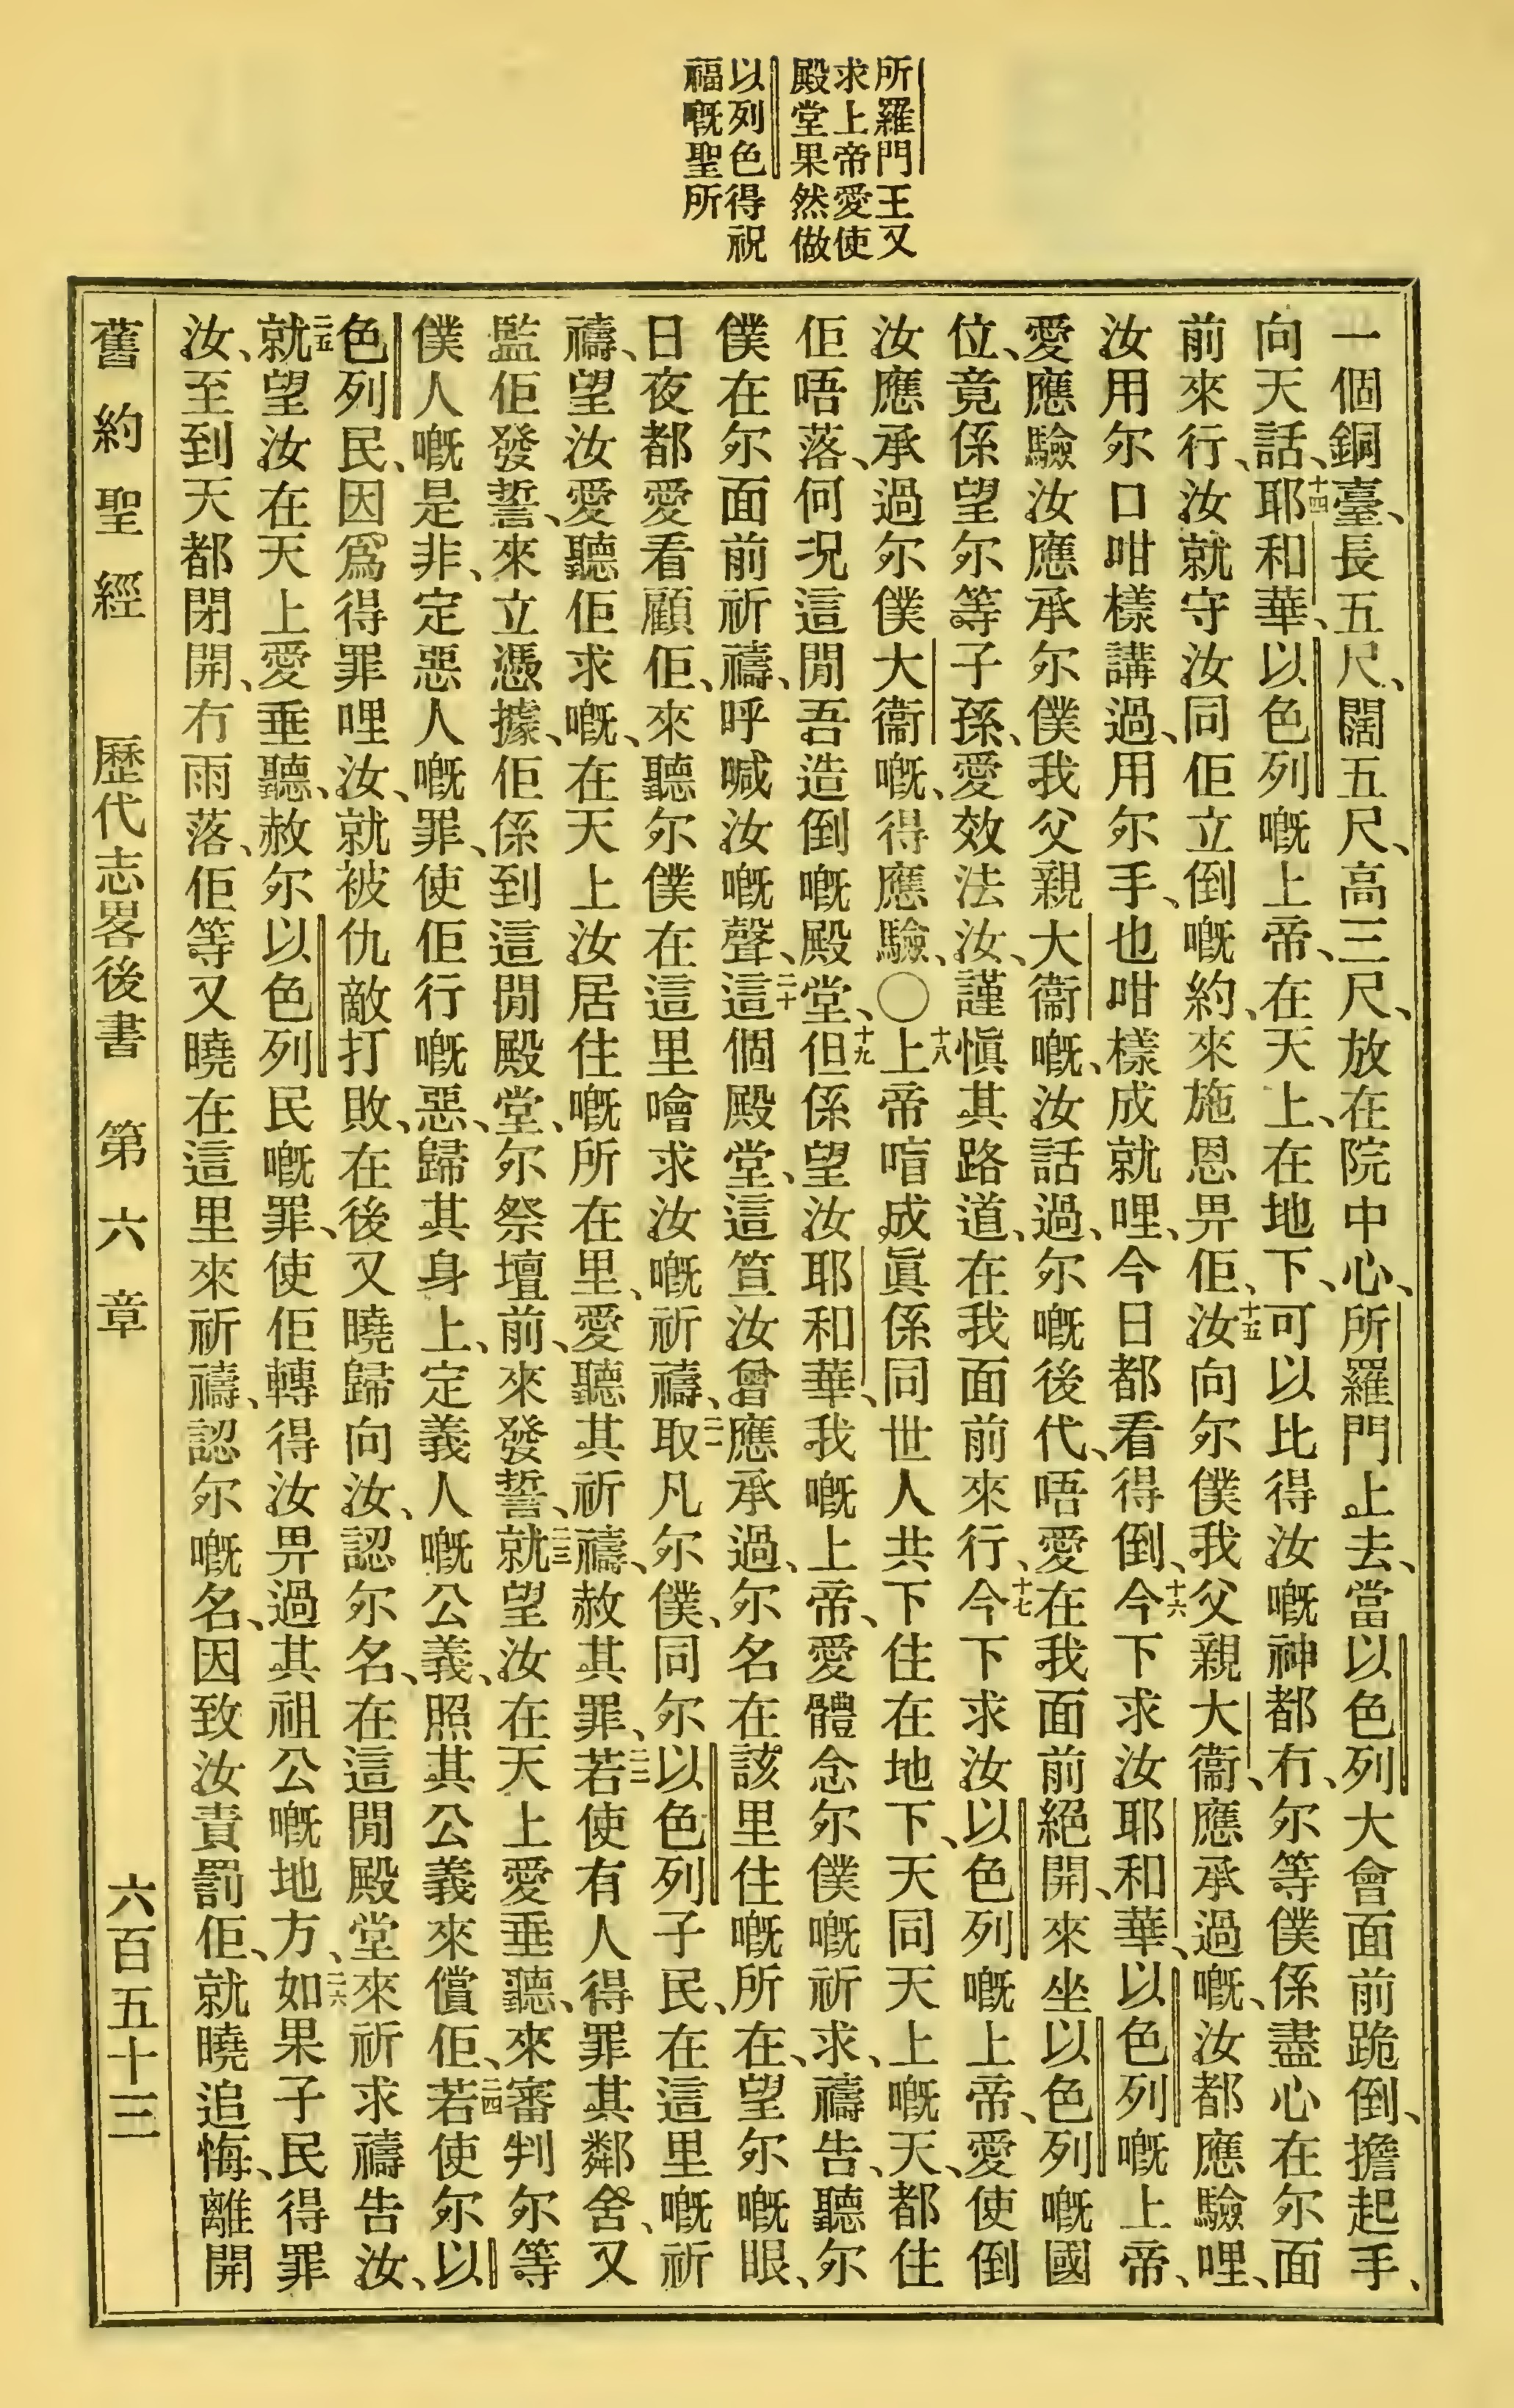 所羅門王又
求上帝愛使
殿堂果然做
以列色得祝
福嘅聖所
一個銅臺、長五尺、闊五尺、高三尺、放在院中心、所羅門上去、當以色列大會面前跪倒、擔起手、
向天話、十四耶和華、以色列嘅上帝、在天上、在地下、可以比得汝嘅神都冇、尔等僕係盡心在尔面
前來行、汝就守汝同佢立倒嘅約、來施恩畀佢、十五汝向尔僕我父親大衞、應承過嘅、汝都應驗哩、
汝用尔口咁樣講過、用尔手、也咁樣成就哩、今日都看得倒、十六今下求汝耶和華、以色列嘅上帝、
愛應驗汝應承尔僕我父親大衞嘅、汝話過、尔嘅後代、唔愛在我面前絕開、來坐以色列嘅國
位、竟係望尔等子孫、愛效法汝、謹慎其路道、在我面前來行、十七今下求汝以色列嘅上帝、愛使倒
汝應承過尔僕大衞嘅、得應驗、〇十八上帝唷成眞係同世人共下住在地下、天同天上嘅天、都住
佢唔落、何况這間吾造倒嘅殿堂、十九但係望汝耶和華、我嘅上帝、愛體念尔僕嘅祈求、禱告、聽尔
僕在尔面前祈禱、呼喊汝嘅聲、二十這個殿堂、這笪汝曾應承過、尔名在該里住嘅所在、望尔嘅眼、
日夜都愛看顧佢、來聽尔僕在這里噲求汝嘅祈禱、二一取凡尔僕、同尔以色列子民、在這里嘅祈
禱、望汝愛聽佢求嘅、在天上汝居住嘅所在里、愛聽其祈禱、赦其罪、二二若使有人得罪其鄰舍、又
監佢發誓、來立憑據、佢係到這間殿堂、尔祭壇前、來發誓、二三就望汝在天上愛垂聽、來審判尔等
僕人嘅是非、定惡人嘅罪、使佢行嘅惡、歸其身上、定義人嘅公義、照其公義來償佢、二四若使尔以
色列民、因爲得罪哩汝、就被仇敵打敗、在後又曉歸向汝、認尔名、在這間殿堂來祈求禱告汝、
二五就望汝在天上愛垂聽、赦尔以色列民嘅罪、使佢轉得汝畀過其祖公嘅地方、二六如果子民得罪
汝、至到天都閉開、冇雨落、佢等又曉在這里來祈禱、認尔嘅名、因致汝責罰佢、就曉追悔、離開
舊約聖經　歷代志畧後書　第六章　六百五十三